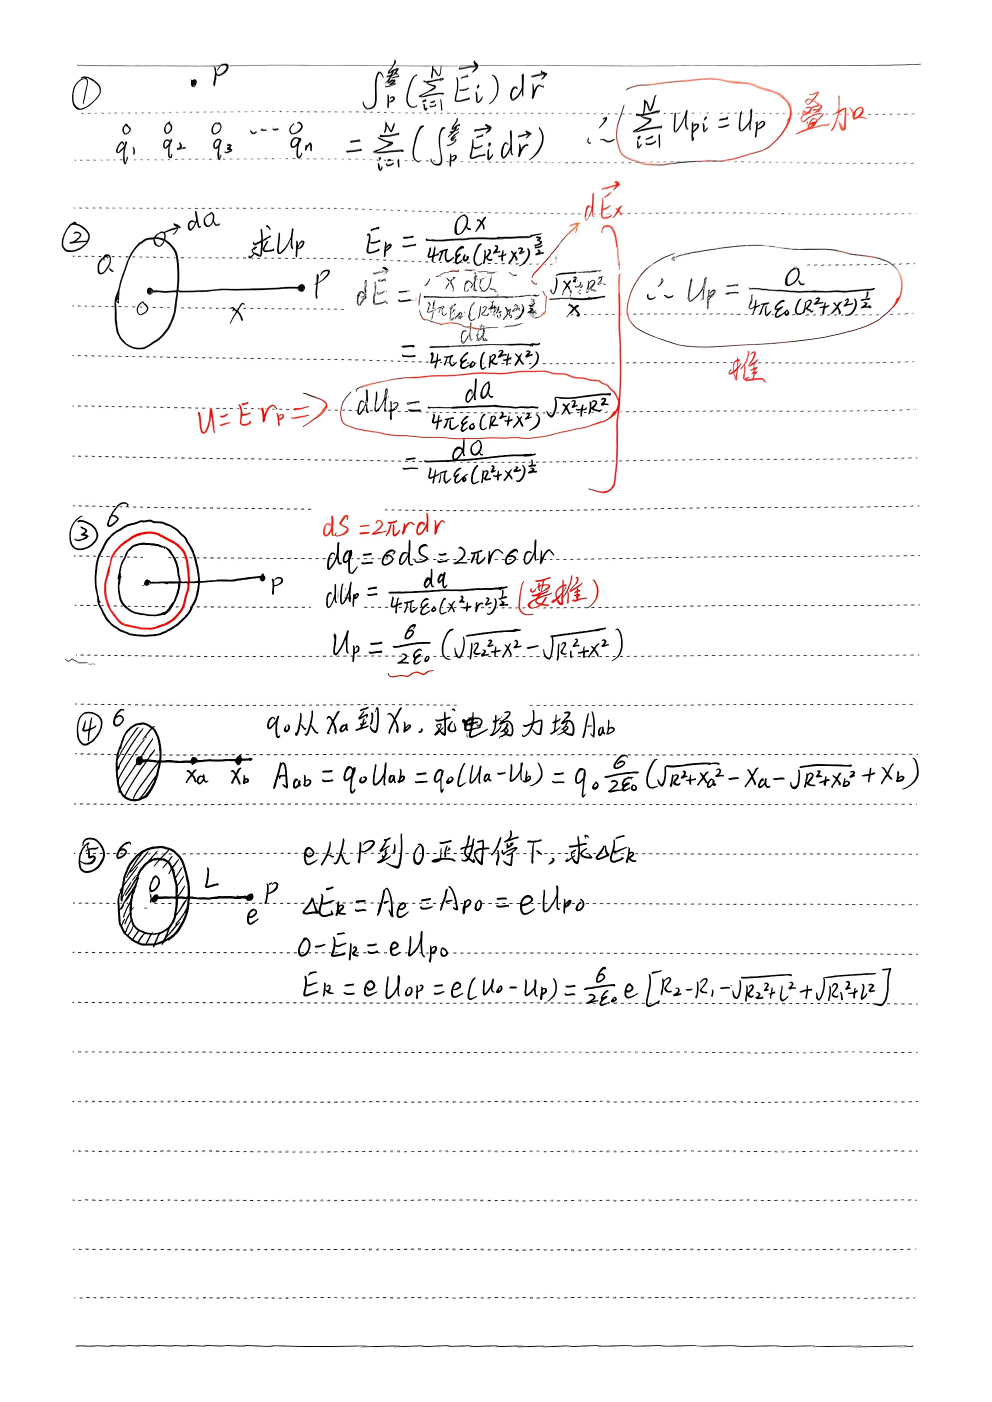 ① P ∫_P^参 (∑_{i=1}^N E⃗i) dr⃗
q₁ q₂ q₃ ··· qn = ∑_{i=1}^N (∫_P^参 E⃗i dr⃗) ∴ ∑_{i=1}^N Upi = Up 叠加
② Q dQ 求Up O x P Ep = Qx / 4πε₀(R²+x²)^{3/2} dE⃗x
dE⃗ = x dQ / 4πε₀(R²+x²)^{3/2} · √(x²+R²) / x ∴ Up = Q / 4πε₀(R²+x²)^{1/2}
= dQ / 4πε₀(R²+x²) 推
U=Erp ⇒ dUp = dQ / 4πε₀(R²+x²) √(x²+R²)
= dQ / 4πε₀(R²+x²)^{1/2}
③ σ P dS=2πrdr
dq = σdS = 2πrσdr
dUp = dq / 4πε₀(x²+r²)^{1/2} (要推)
Up = σ/2ε₀ (√(R₂²+x²) − √(R₁²+x²))
④ σ xa xb q₀从xa到xb, 求电场力场Aab
Aab = q₀Uab = q₀(Ua−Ub) = q₀ σ/2ε₀ (√(R²+xa²) − xa − √(R²+xb²) + xb)
⑤ σ O L P e e从P到O正好停下, 求ΔEk
ΔEk = Ae = Apo = eUpo
0−Ek = eUpo
Ek = eUop = e(Uo−Up) = σ/2ε₀ e [R₂−R₁−√(R₂²+L²)+√(R₁²+L²)]